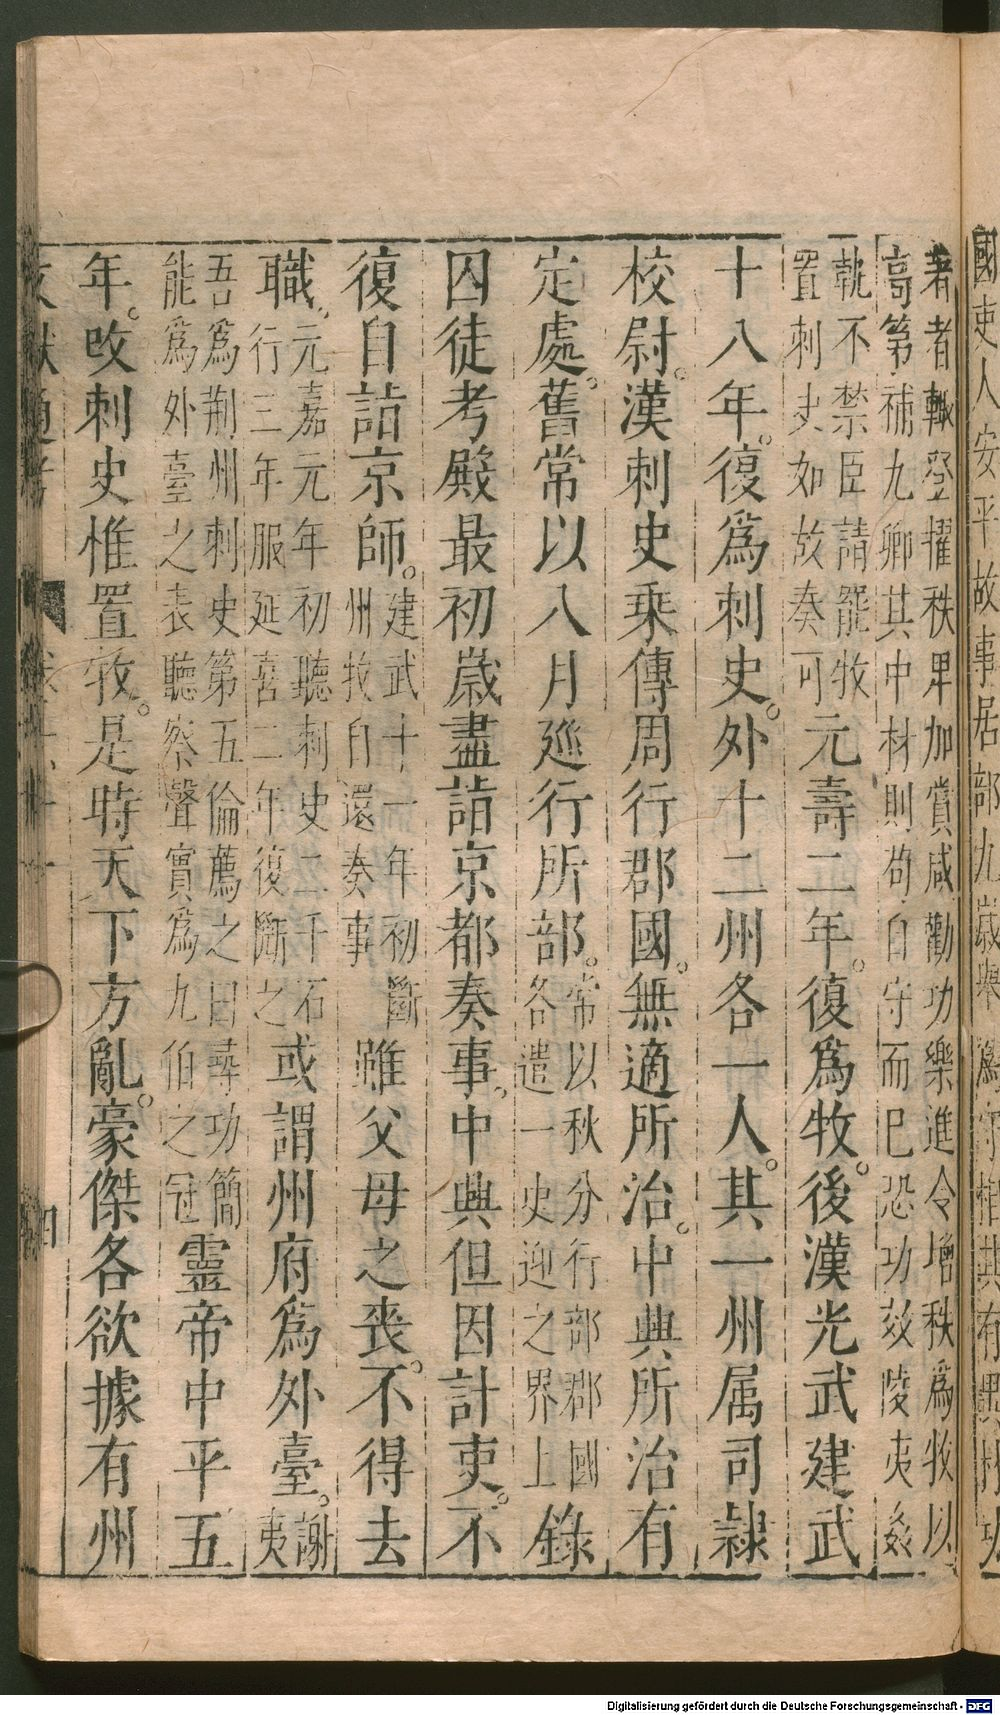 國吏人安平故事居部九歲舉爲守相其有異材功
著者輙登擢秩卑加賞咸勸功樂進今增秩爲牧以
高第補九卿其中材則苟自守而已恐功效陵夷姦
執不禁臣請罷牧
置刺史如故奏可元壽二年。復爲牧。後漢光武建武
十八年。復爲刺史。外十二州各一人。其一州属司隸
校尉。漢刺史乘傳周行郡國。無適所治。中興所治有
定處。舊常以八月廵行所部。常以秋分行部郡國
各遣一吏迎之界上錄
囚徒考殿最初歲盡詣京都奏事。中興但因計吏。不
復自詣京師。建武十一年初斷
州牧自還奏事雖父母之喪。不得去
職。元嘉元年初聽刺史二千石
行三年服延熹二年復斷之或謂州府爲外臺。謝
夷
吾爲荆州刺史第五倫薦之曰尋功簡
能爲外臺之表聽察聲實爲九伯之冠靈帝中平五
年。改刺史惟置牧。是時天下方亂。豪傑各欲據有州